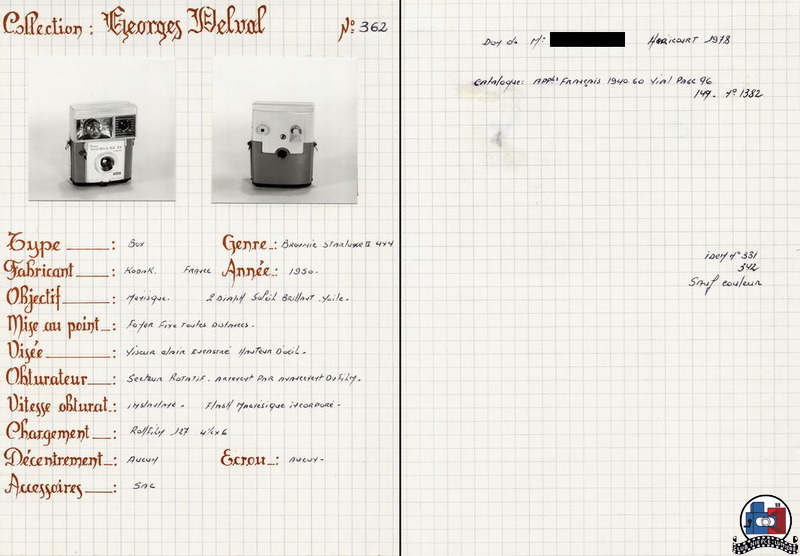 Collection : Georges Delval N° 362
Type : Box Genre : Brownie Starluxe II 4x4
Fabricant : Kodak. France Année : 1950.
Objectif : Ménisque. 2 Diaph Soleil Brillant. Voile.
Mise au point : Foyer Fixe Toutes Distances.
Visée : Viseur clair Hauteur D'oeil.
Obturateur : Secteur Rotatif. Armement PAR avancement Du Film.
Vitesse obturat. : instantané. Flash Magnésique incorporé.
Chargement : Rollfilm 127 4½x6
Décentrement : Aucun Ecrou : aucun.
Accessoires : Sac
Don de Mr Héricourt 1978
Catalogue: APPls Français 1940.60 Vial Page 96
149. N° 1382
idem N° 331
342
Sauf couleur